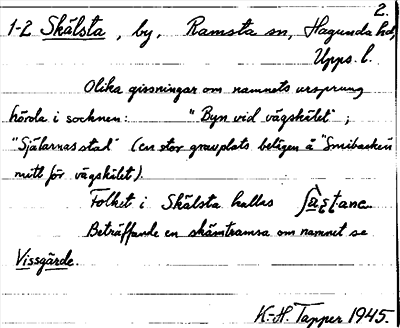 2.
1-2 Skälsta, by, Ramsta sn, Hagunda hd,
Upps. l.
Olika gissningar om namnets ursprung
hörda i socknen: "Byn vid vägskälet";
"Själarnas stad" (en stor gravplats belägen å "Smibacken
mitt för vägskälet).
Folket i Skälsta kallas
Beträffande en skämtramsa om namnet se
Vissgärde.
K.-H. Tapper 1945.